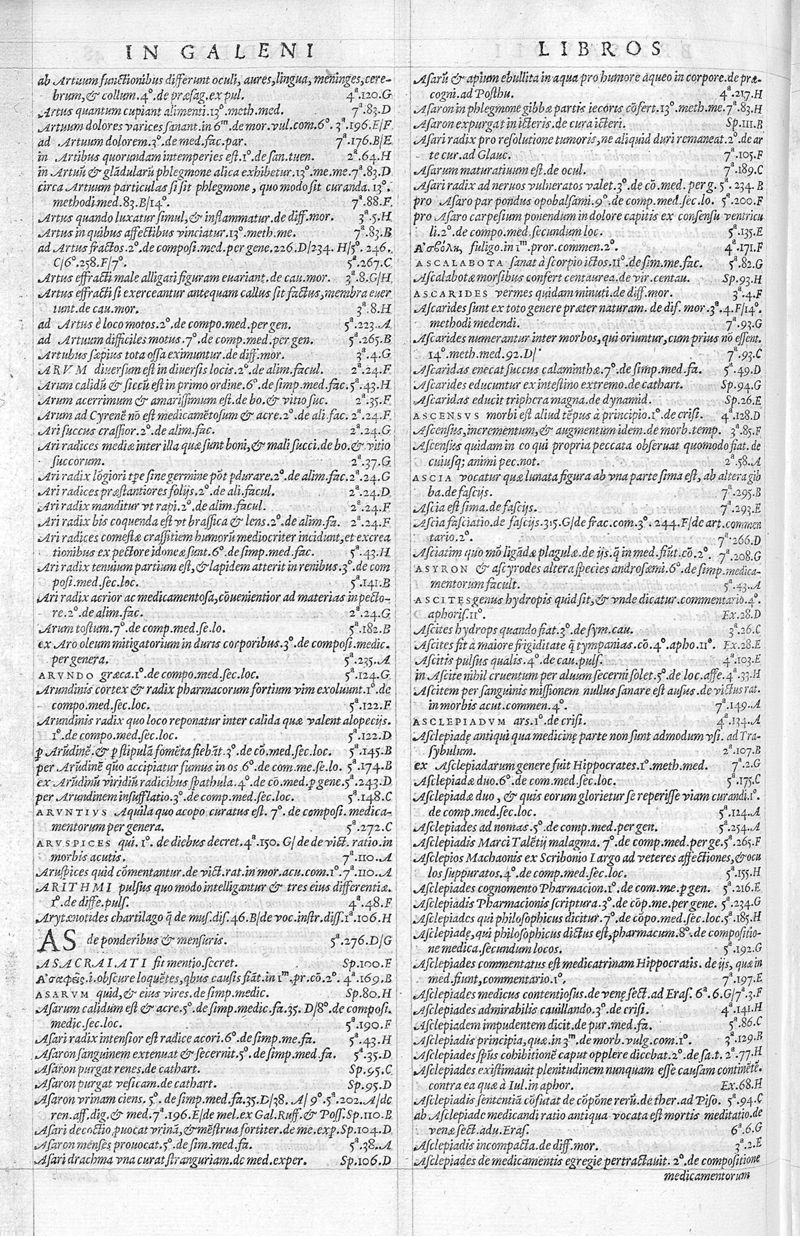 IN GALENI
ab Artuum functionibus differunt oculi, aures, lingua, meninges, cere-
brum, & collum. 4°. de præsag. ex pul. 4ª.120.G
Artus quantum cupiant alimenti. 13°. meth. med. 7ª.83.D
Artuum dolores varices sanant. in 6m. de mor. vul. com. 6°. 3ª.196.E/F
ad Artuum dolorem. 3°. de med. fac. par. 7ª.176.B/E
in Artibus quorundam intemperies est. 1°. de san. tuen. 2ª.64.H
in Artuũ & glãdularũ phlegmone alica exhibetur. 13°. me. me. 7ª.83.D
circa Artuum particulas si sit phlegmone, quo modo sit curanda. 13°.
methodi med. 83.B/14°. 7ª.88.F.
Artus quando luxatur simul, & inflammatur. de diff. mor. 3ª.5.H
Artus in quibus affectibus vinciatur. 13°. meth. me. 7ª.83.B
ad Artus fractos. 2°. de composi. med. per gene. 226.D/234. H/5°. 246.
C/6°. 258.F/7°. 5ª.267.C
Artus effracti male alligari figuram euariant. de cau. mor. 3ª.8.G/H
Artus effracti si exerceantur antequam callus sit factus, membra euer
tunt. de cau. mor. 3ª.8.H
ad Artus è loco motos. 2°. de compo. med. per gen. 5ª.223.A
ad Artuum difficiles motus. 7°. de comp. med. per gen. 5ª.265.B
Artubus sæpius tota ossa eximuntur. de diff. mor. 3ª.4.G
ARVM diuersum est in diuersis locis. 2°. de alim. facul. 2ª.24.F
Arum calidũ & siccũ est in primo ordine. 6°. de simp. med. fac. 5ª.43.H
Arum acerrimum & amarissimum est. de bo. & vitio suc. 2ª.35.F
Arum ad Cyrenẽ nõ est medicamẽtosum & acre. 2°. de ali. fac. 2ª.24.F
Ari succus crassior. 2°. de alim. fac. 2ª.24.G
Ari radices mediæ inter illa quæ sunt boni, & mali succi. de bo. & vitio
succorum. 2ª.37.G
Ari radix lõgiori tpe sine germine põt pdurare. 2°. de alim. fac. 2ª.24.G
Ari radices præstantiores folijs. 2°. de ali. facul. 2ª.24.D
Ari radix manditur vt rapi. 2°. de alim. facul. 2ª.24.F
Ari radix bis coquenda est vt brassica & lens. 2°. de alim. fa. 2ª.24.F
Ari radices comestæ crassitiem humorũ mediocriter incidunt, et excrea
tionibus ex pectore idoneæ sunt. 6°. de simp. med. fac. 5ª.43.H
Ari radix tenuium partium est, & lapidem atterit in renibus. 3°. de com
posi. med. sec. loc. 5ª.141.B
Ari radix acrior ac medicamentosa, cõuenientior ad materias in pecto-
re. 2°. de alim. fac. 2ª.24.G
Arum tostum. 7°. de comp. med. se. lo. 5ª.182.B
ex Aro oleum mitigatorium in duris corporibus. 3°. de composi. medic.
per genera. 5ª.235.A
ARVNDO græca. 1°. de compo. med. sec. loc. 5ª.124.G
Arundinis cortex & radix pharmacorum fortium vim exoluunt. 1°. de
compo. med. sec. loc. 5ª.122.F
Arundinis radix quo loco reponatur inter calida quæ valent alopecijs.
1°. de compo. med. sec. loc. 5ª.122.D
p Arũdinẽ. & p stipulã fomẽta fiebãt. 3°. de cõ. med. sec. loc. 5ª.145.B
per Arũdinẽ quo accipiatur fumus in os 6°. de com. me. se. lo. 5ª.174.B
ex Arũdinũ viridiũ radicibus spathula. 4°. de cõ. med. p gene. 5ª.243.D
per Arundinem insufflatio. 3°. de comp. med. sec. loc. 5ª.148.C
ARVNTIVS Aquila quo acopo curatus est. 7°. de composi. medica-
mentorum per genera. 5ª.272.C
ARVSPICES qui. 1°. de diebus decret. 4ª.150. G/ de de vict. ratio. in
morbis acutis. 7ª.110.A
Aruspices quid cõmentantur. de vict. rat. in mor. acu. com. 1°. 7ª.110.A
ARITHMI pulsus quo modo intelligantur & tres eius differentiæ.
1°. de diffe. puls. 4ª.48.F
Arytænotides chartilago q̃ de mus. dis. 46.B/de voc. instr. diss. 1ª.106.H
AS de ponderibus & mensuris. 5ª.276.D/G
ASACRAIATI fit mentio. secret. Sp.100.E
Ἀσαφεῖς. i. obscure loquẽtes, qbus causis fiãt. in 1m. pr. cõ. 2°. 4ª.169.B
ASARVM quid, & eius vires. de simp. medic. Sp.80.H
Asarum calidum est & acre. 5°. de simp. medic. fa. 35. D/8°. de composi.
medic. sec. loc. 5ª.190.F
Asari radix intensior est radice acori. 6°. de simp. me. fa. 5ª.43.H
Asaron sanguinem extenuat & secernit. 5°. de simp. med. fa. 5ª.35.D
Asaron purgat renes. de cathart. Sp.95.C
Asaron purgat vesicam. de cathart. Sp.95.D
Asaron vrinam ciens. 5°. de simp. med. fa. 35.D/38. A/ 9°. 5ª.202. A/de
ren. aff. dig. & med. 7ª.196.E/de mel. ex Gal. Ruff. & Poss. Sp.110.B
Asari decoctio puocat vrinã, & mẽstrua fortiter. de me. exp. Sp.104.D
Asaron menses prouocat. 5°. de sim. med. fa. 5ª.38.A
Asari drachma vna curat stranguriam. de med. exper. Sp.106.D
LIBROS
Asarũ & apium ebullita in aqua pro humore aqueo in corpore. de præ-
cogni. ad Posthu. 4ª.217.H
Asaron in phlegmone gibbæ partis iecoris cõfert. 13°. meth. me. 7ª.83.H
Asaron expurgat in icteris. de cura icteri. Sp.111.B
Asari radix pro resolutione tumoris, ne aliquid duri remaneat. 2°. de ar
te cur. ad Glauc. 7ª.105.F
Asarum maturatiuum est. de ocul. 7ª.189.C
Asari radix ad neruos vulneratos valet. 3°. de cõ. med. perg. 5ª.234.B
pro Asaro par pondus opobalsami. 9°. de comp. med. sec. lo. 5ª.200.F
pro Asaro carpesium ponendum in dolore capitis ex consensu ventricu
li. 2°. de comp. med. secundum loc. 5ª.135.E
Ἀσβόλη, fuligo. in 1m. pror. commen. 2°. 4ª.171.F
ASCALABOTA sanat à scorpio ictos. 11°. de sim. me. fac. 5ª.82.G
Ascalabotæ morsibus confert centaurea. de vir. centau. Sp.93.H
ASCARIDES vermes quidam minuti. de diff. mor. 3ª.4.F
Ascarides sunt ex toto genere præter naturam. de dif. mor. 3ª.4.F/14°.
methodi medendi. 7ª.93.G
Ascarides numerantur inter morbos, qui oriuntur, cum prius nõ essent.
14°. meth. med. 92.D/ 7ª.93.C
Ascaridas enecat succus calaminthæ. 7°. de simp. med. fa. 5ª.49.D
Ascarides educuntur ex intestino extremo. de cathart. Sp.94.G
Ascarides educit triphera magna. de dynamid. Sp.26.E
ASCENSVS morbi est aliud tẽpus à principio. 1°. de crisi. 4ª.128.D
Ascensus, incrementum, & augmentum idem. de morb. temp. 3ª.85.F
Ascensus quidam in eo qui propria peccata obseruat quomodo fiat. de
cuiusq; animi pec. not. 2ª.58.A
ASCIA vocatur quæ lunata figura ab vna parte sima est, ab altera gib
ba. de fascijs. 7ª.295.B
Ascia est sima. de fascijs. 7ª.293.E
Ascia fasciatio. de fascijs. 315.G/de frac. com. 3°. 244.F/de art. commen
tario. 2°. 7ª.266.D
Asciatim quo mõ ligãdæ plagulæ. de ijs. q̃ in med. fiũt. cõ. 2°. 7ª.208.G
ASYRON & ascyrodes altera species androsæmi. 6°. de simp. medica-
mentorum facult. 5ª.43.A
ASCITES genus hydropis quid sit, & vnde dicatur. commentario. 4°.
aphoris. 11°. Ex.28.D
Ascites hydrops quando fiat. 3°. de sym. cau. 3ª.26.C
Ascites fit à maiore frigiditate q̃ tympanias. cõ. 4°. apho. 11°. Ex.28.E
Ascitis pulsus qualis. 4°. de cau. puls. 4ª.103.E
in Ascite nihil cruentum per aluum secerni solet. 5°. de loc. affe. 4ª.33.H
Ascitem per sanguinis missionem nullus sanare est ausus. de victus rat.
in morbis acut. commen. 4°. 7ª.149.A
ASCLEPIADVM ars. 1°. de crisi. 4ª.134.A
Asclepiadę antiqui qua medicinę parte non sunt admodum vsi. ad Tra-
sybulum. 2ª.107.B
ex Asclepiadarum genere fuit Hippocrates. 1°. meth. med. 7ª.2.G
Asclepiadæ duo. 6°. de com. med. sec. loc. 5ª.175.C
Asclepiadæ duo, & quis eorum glorietur se reperisse viam curandi. 1°.
de comp. med. sec. loc. 5ª.124.A
Asclepiades ad nomas. 5°. de comp. med. per gen. 5ª.254.A
Asclepiadis Marci Talẽtij malagma. 7°. de comp. med. per ge. 5ª.265.F
Asclepios Machaonis ex Scribonio Largo ad veteres affectiones, & ocu
los suppuratos. 4°. de comp. med. sec. loc. 5ª.155.H
Asclepiades cognomento Pharmacion. 1°. de com. me. p gen. 5ª.216.E
Asclepiadis Pharmacionis scriptura. 3°. de cõp. me. per gene. 5ª.234.G
Asclepiades qui philosophicus dicitur. 7°. de cõpo. med. sec. loc. 5ª.185.H
Asclepiadę, qui philosophicus dictus est, pharmacum. 8°. de compositio-
ne medica. secundum locos. 5ª.192.G
Asclepiades commentatus est medicatrinam Hippocratis. de ijs, quæ in
med. fiunt, commentario. 1°. 7ª.197.E
Asclepiades medicus contentiosus. de venę sect. ad Eras. 6ª.6.G/7ª.3.F
Asclepiades admirabilis cauillando. 3°. de crisi. 4ª.141.H
Asclepiadem impudentem dicit. de pur. med. fa. 5ª.86.C
Asclepiadis principia, quæ. in 3m. de morb. vulg. com. 1°. 3ª.129.B
Asclepiades spũs cohibitionẽ caput opplere dicebat. 2°. de sa. t. 2ª.77.H
Asclepiades existimauit plenitudinem nunquam esse causam continẽtẽ.
contra ea quæ à Iul. in aphor. Ex.68.H
Asclepiadis sententiã cõfutat de cõpõne rerũ. de ther. ad Piso. 5ª.94.C
ab Asclepiade medicandi ratio antiqua vocata est mortis meditatio. de
venæ sect. adu. Eras. 6ª.6.G
Asclepiadis incompacta. de diff. mor. 3ª.2.E
Asclepiades de medicamentis egregie pertractauit. 2°. de compositione
medicamentorum